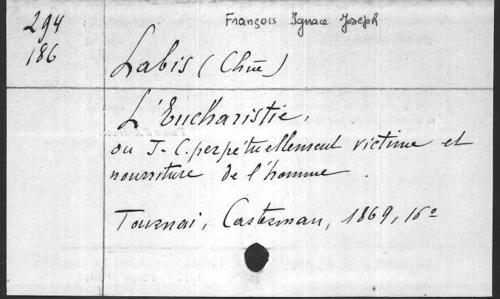 294
186
François Ignace Joseph
Labis (Chne)
L'Eucharistie,
ou J-C. perpétuellement victime et
nourriture de l'homme.
Tournai, Casterman, 1869, 16º